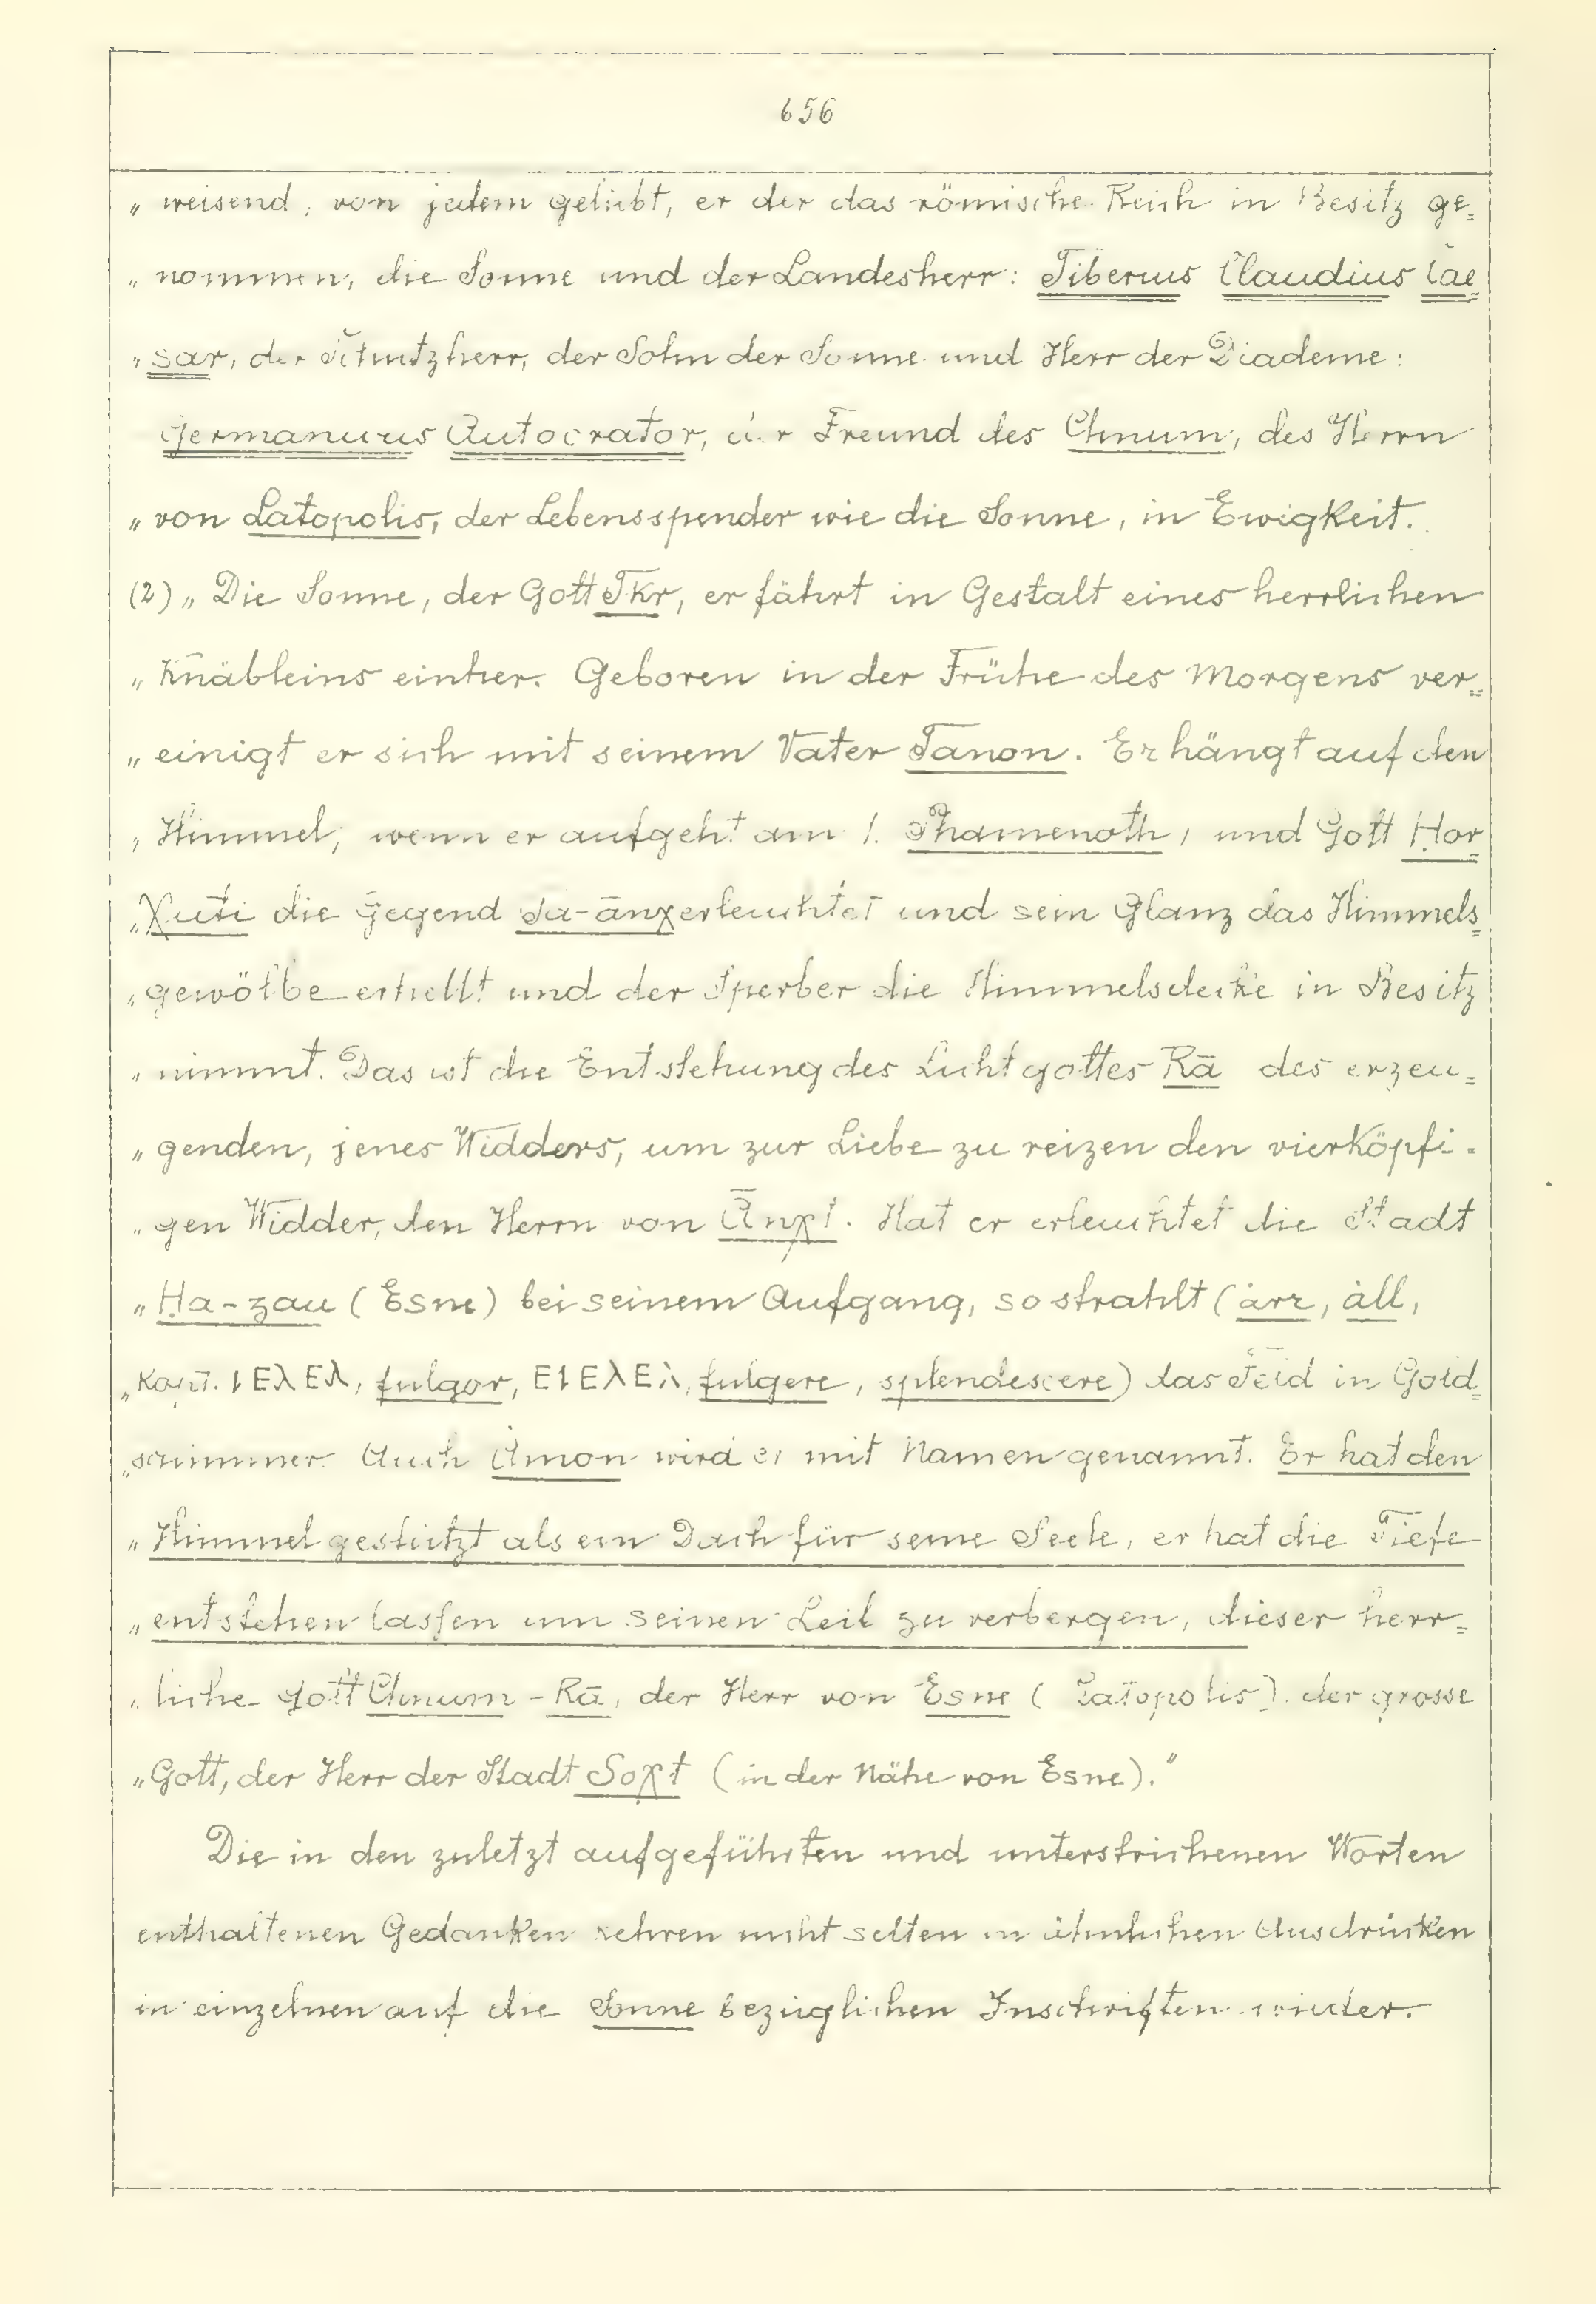 656
„ weisend, von jedem geliebt, er der das römische Reich in Besitz ge=
„ nommen, die Sonne und der Landesherr: Tiberius Claudius Cae=
„ sar, der Schutzherr, der Sohn der Sonne und Herr der Diademe:
Germanicus Autocrator, der Freund des Chnum, des Herrn
„ von Latopolis, der Lebensspender wie die Sonne, in Ewigkeit.
(2) „ Die Sonne, der Gott Tkr, er fährt in Gestalt eines herrlichen
„ Knäbleins einher. Geboren in der Frühe des Morgens ver=
„ einigt er sich mit seinem Vater Tanon. Er hängt auf den
„ Himmel, wenn er aufgeht am 1. Phamenoth, und Gott Hor=
„ χuti die Gegend Ta-ānχ erleuchtet und sein Glanz das Himmels=
„ gewölbe erhellt und der Sperber die Himmelsdecke in Besitz
„ nimmt. Das ist die Entstehung des Lichtgottes Rā des erzeu=
„ genden, jenes Widders, um zur Liebe zu reizen den vierköpfi-
„ gen Widder, den Herrn von Ānχt. Hat er erleuchtet die Stadt
„ Ha-zau (Esne) bei seinem Aufgang, so strahlt (arr, all,
„ Kopt. ⲓⲉⲗⲉⲗ, fulgor, ⲉⲓⲉⲗⲉⲗ, fulgere, splendescere) das Feld in Gold=
„ schimmer. Auch Amon wird er mit Namen genannt. Er hat den
„ Himmel gestützt als ein Dach für seine Seele, er hat die Tiefe
„ entstehen lassen um seinen Leib zu verbergen, dieser herr=
„ liche Gott Chnum-Rā, der Herr von Esne (Latopolis), der grosse
„ Gott, der Herr der Stadt Soχt (in der Nähe von Esne)."
Die in den zuletzt aufgeführten und unterstrichenen Worten
enthaltenen Gedanken kehren nicht selten in ähnlichen Ausdrücken
in einzelnen auf die Sonne bezüglichen Inschriften wieder.